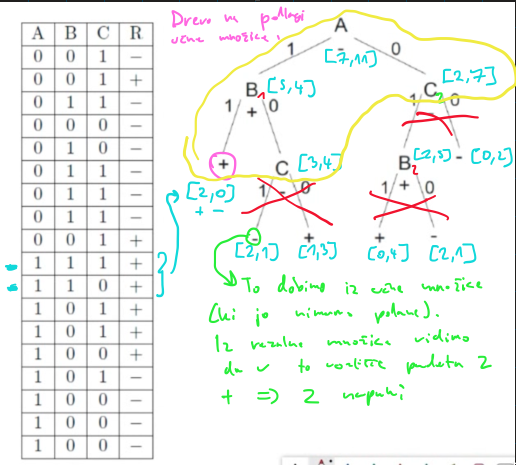 A B C R
0 0 1 −
0 0 1 +
0 1 1 −
0 0 0 −
0 1 0 −
0 1 1 −
0 1 1 −
0 1 1 −
0 0 1 +
1 1 1 +
1 1 0 +
1 0 1 +
1 0 1 +
1 0 0 +
1 0 1 −
1 0 0 −
1 0 0 −
1 0 0 −
Drevo na podlagi
učne množice.
A
1 - 0
[7,11]
B1 [5,4] C2 [2,7]
1 + 0 1 - 0
+ C [3,4] B2 [2,5] - [0,2]
[2,0] 1 - 0 1 + 0
+ -
- + + -
[2,1] [1,3] [0,4] [2,1]
To dobimo iz učne množice
(ki jo nimamo podane).
Iz rezalne množice vidimo
da v to vozlišče padeta 2
+ => 2 napaki